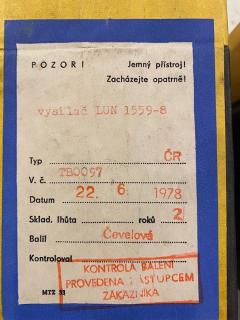 POZOR! Jemný přístroj!
Zacházejte opatrně!
vysílač LUN 1559-8
Typ ČR
V. č. TB0097
Datum 22. 6 1978
Sklad. lhůta roků 2
Balil Čevelová
Kontroloval
KONTROLA BALENÍ
PROVEDENA ZÁSTUPCEM
ZÁKAZNÍKA
MTZ 53